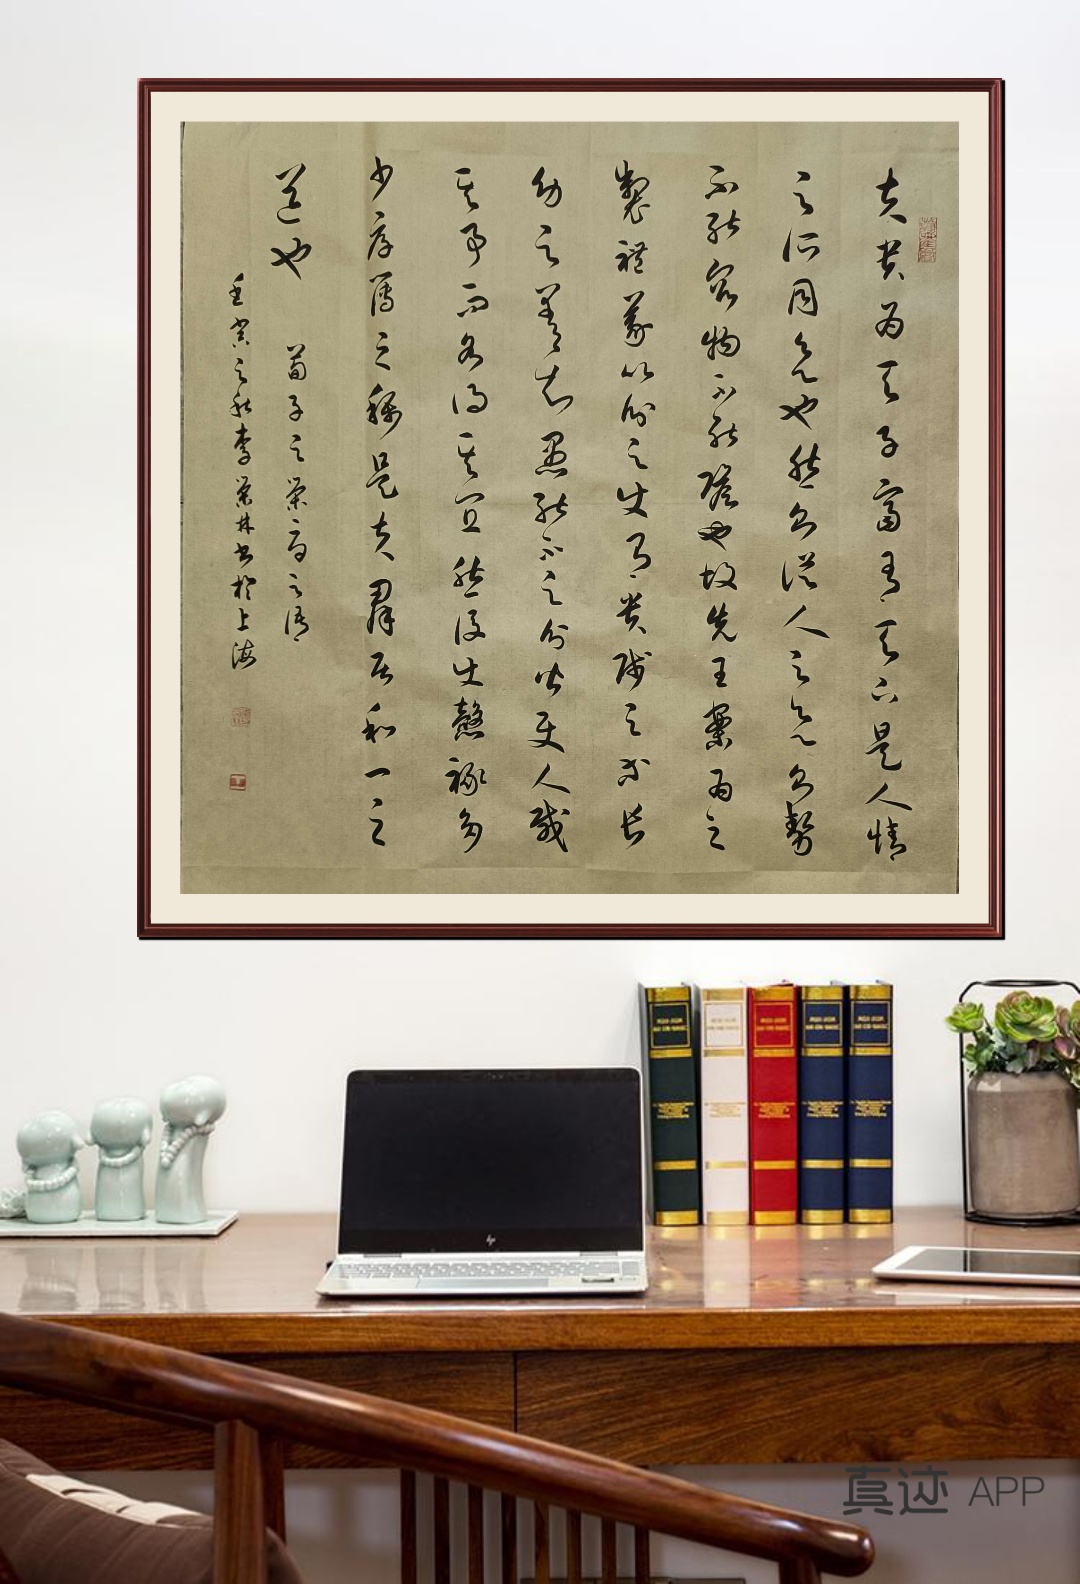 夫贵为天子富有天下是人情
之所同欲也然则従人之欲则勢
不能容物不能赡也故先王案为之
製禮義以分之使有贵贱之等长
幼之差知愚能不之分皆使人载
其事而各得其宜然後使慤祿多
少厚薄之稱是夫群居和一之
道也 荀子之荣辱之语
壬寅之秋李荣林书於上海
hp
真迹 APP